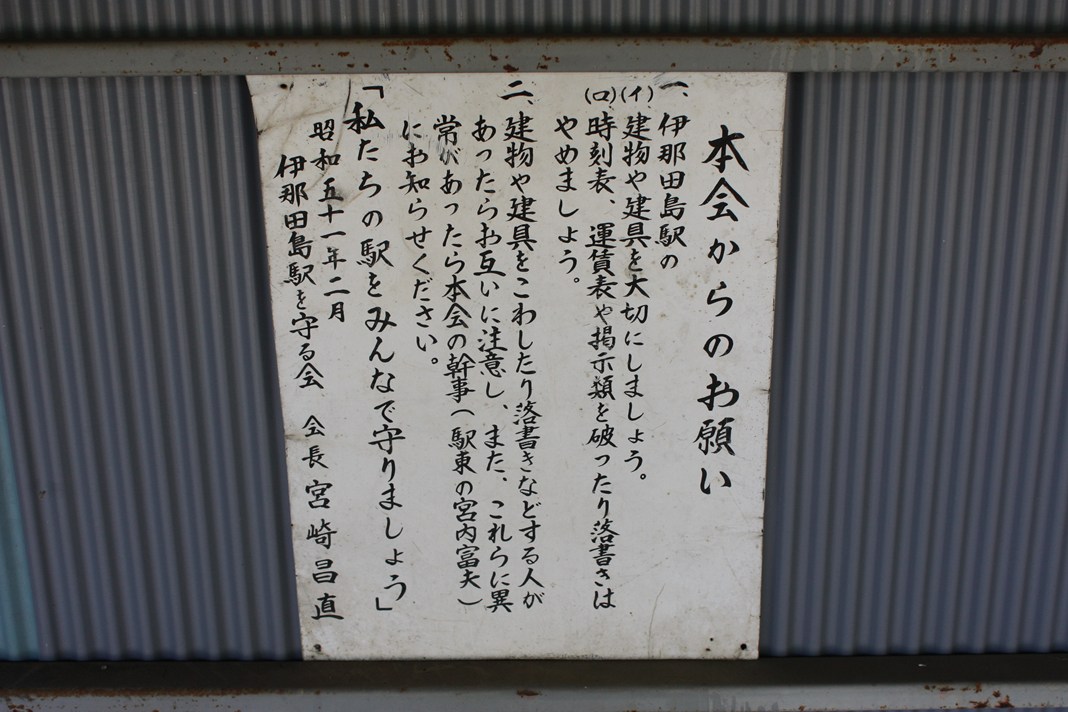 本会からのお願い
一、伊那田島駅の
(イ)建物や建具を大切にしましょう。
(ロ)時刻表、運賃表や掲示類を破ったり落書きは
やめましょう。
二、建物や建具をこわしたり落書きなどする人が
あったらお互いに注意し、また、これらに異
常があったら本会の幹事(駅東の宮内富夫)
にお知らせください。
「私たちの駅をみんなで守りましょう」
昭和五十一年二月
伊那田島駅を守る会 会長 宮崎昌直